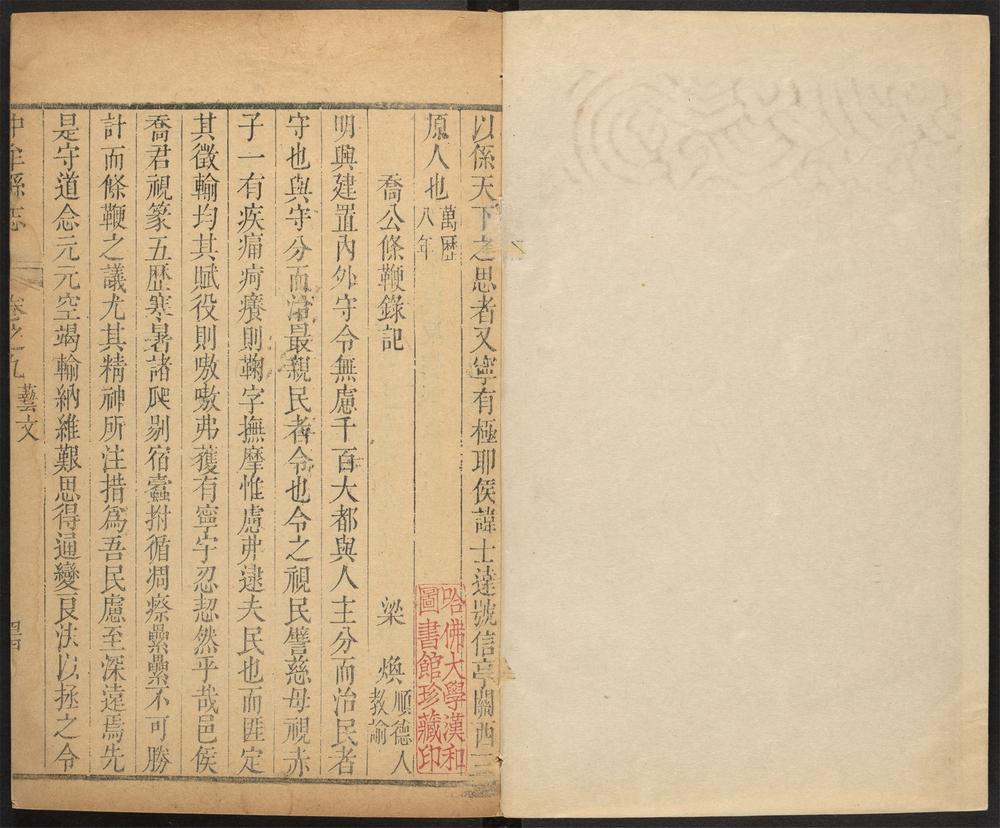 以係天下之思者又寧有極耶侯諱士達號信亭關西三
原人也萬歷
八年
喬公條鞭錄記
梁煥順德人
教諭
明興建置內外守令無慮千百大都與人主分而治民者
守也與守分而治最親民者令也令之視民譬慈母視赤
子一有疾痛疴癢則鞠字撫摩惟慮弗逮夫民也而匪定
其徵輸均其賦役則嗷嗷弗獲有寧宇忍恝然乎哉邑侯
喬君視篆五歷寒暑諸爬剔宿蠹拊循凋瘵纍纍不可勝
計而條鞭之議尤其精神所注措為吾民慮至深遠焉先
是守道念元元空竭輸納維艱思得通變良法以拯之令
中牟縣志
卷之九
藝文
哈佛大學漢和
圖書館珍藏印